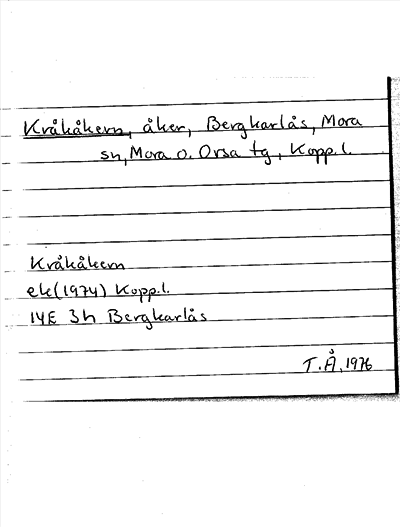 Kråkåkern, åker, Bergkarlås, Mora
sn, Mora o. Orsa tg, Kopp.l.
Kråkåkern
ek(1974) Kopp.l.
14E 3h Bergkarlås
T.Å. 1976